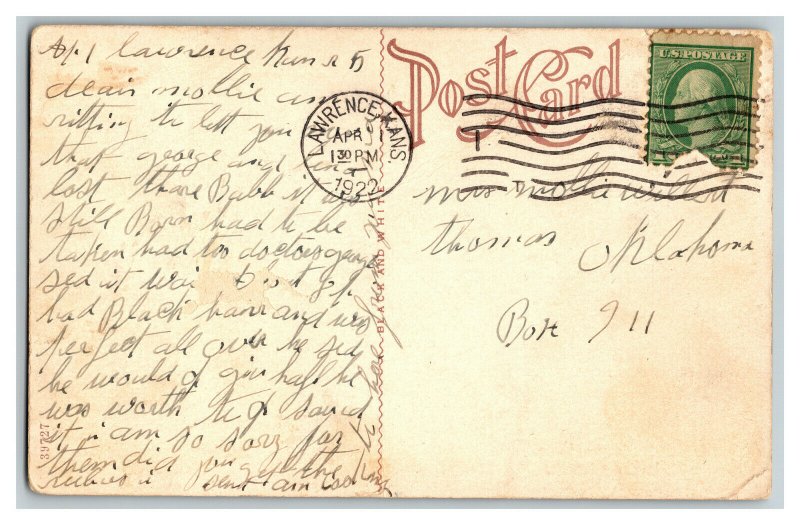 lawrence Kans
dear mollie am
ritting to let you
that george and
lost thare Babb it was
still Born had to be
taken had too doctors george
sed it was
had Black hare and was
perfect all over he sed
he would of giv half he
was worth to of saved
it i am so sorry for
them did you get the
sent
Post Card
LAWRENCE, KANS.
APR 1
1 30 PM
1922
U.S. POSTAGE
mrs mollie willett
thomas Oklahoma
Box 911
BLACK AND WHITE
39727